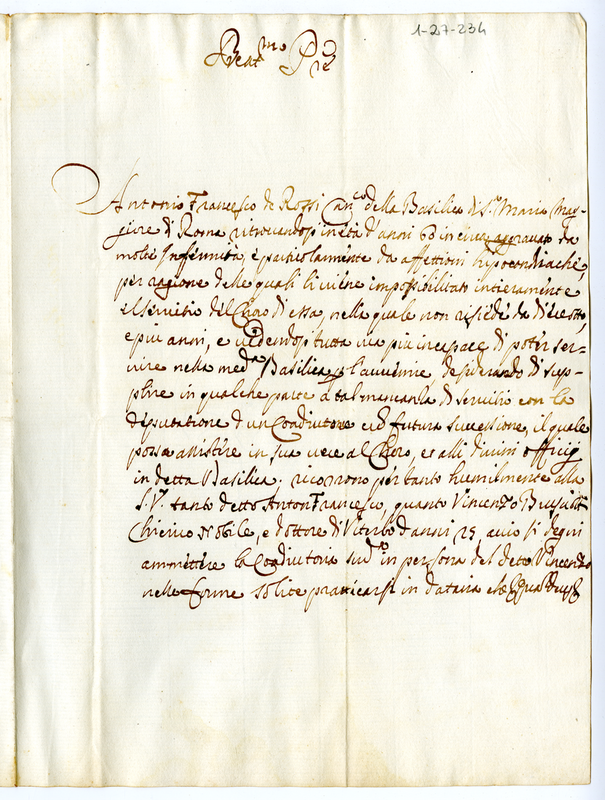 1-27-234
Beat.mo P.re
Antonio Francesco de Rossi Can.co della Basilica di S.ta Maria Mag-
giore di Roma ritrovandosi in età d'anni 63 in circa aggravato da
molte Infermità, e particolarmente da affettioni hypocondriache,
per ragione delle quali li viene impossibilitato intieramente
il servitio del Choro di essa, nella quale non risiede da dieceotto,
e più anni, e vedendosi tutta via più incapace di poter ser-
vire nella med.a Basilica p l'avvenire desiderando di sup-
plire in qualche parte a tal mancanza di servitio con la
deputatione d'un Coadiutore cũ futura successione, il quale
possa assistere in sua vece al Choro, et alli divini officij
in detta Basilica; ricorrono per tanto humilmente alla
S. V. tanto detto Anton Francesco, quanto Vincenzo
Chierico Nobile, e dottore di Viterbo d'anni 25, acciò si degni
ammettere la Coadiutoria sud.a in persona del detto Vincenzo
nelle forme solite pratticarsi in dataria che